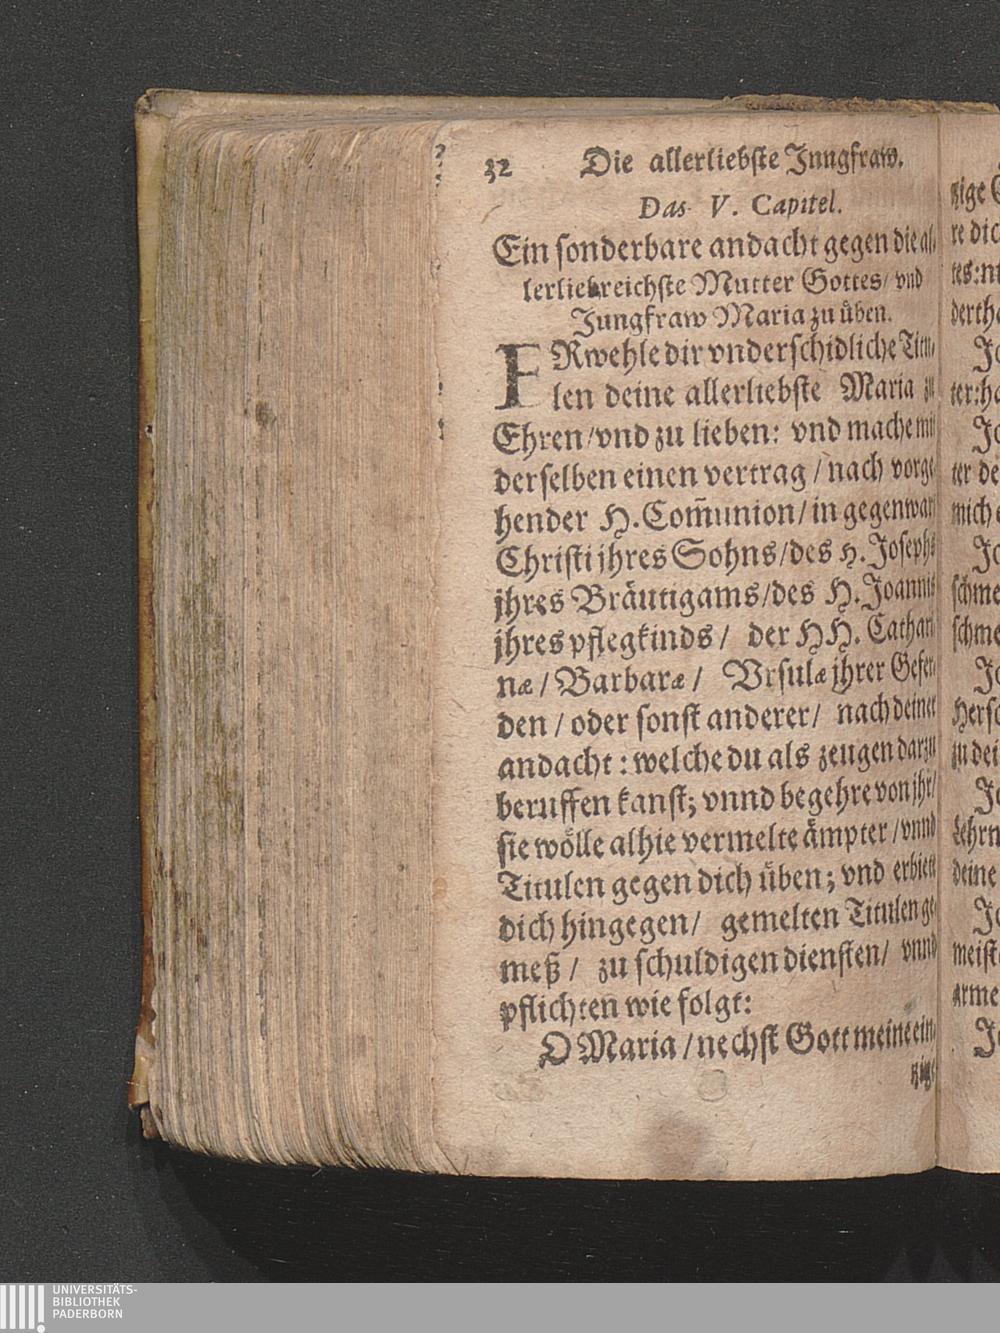 32 Die allerliebste Jungfraw.
Das V. Capitel.
Ein sonderbare andacht gegen die al-
lerliebreichste Mutter Gottes/ vnd
Jungfraw Maria zu üben.
ERwehle dir vnderschidliche Titu-
len deine allerliebste Maria zu
Ehren/vnd zu lieben: vnd mache mit
derselben einen vertrag/nach vorge
hender H. Com̃union/in gegenwart
Christi jhres Sohns/des H. Josephs
jhres Bräutigams/des H. Joannis
jhres pflegkinds/ der HH. Cathari
næ/Barbaræ/ Vrsulæ jhrer Gefer-
den/oder sonst anderer/ nach deiner
andacht: welche du als zeugen darzu
beruffen kanst; vnnd begehre von jhr/
sie wölle alhie vermelte ämpter/vnnd
Titulen gegen dich üben; vnd erbiete
dich hingegen/ gemelten Titulen ge
meß/ zu schuldigen diensten/ vnnd
pflichten wie folgt:
O Maria/nechst Gott meine ein-
zige
zige
re dic
tes:
derth
Jo
ter:ha
Jo
ter de
mich
Jo
schme
schme
Jo
Hersc
zu dei
Jo
Lehrm
deine
Jo
meist
arme
Jo
UNIVERSITÄTS-
BIBLIOTHEK
PADERBORN